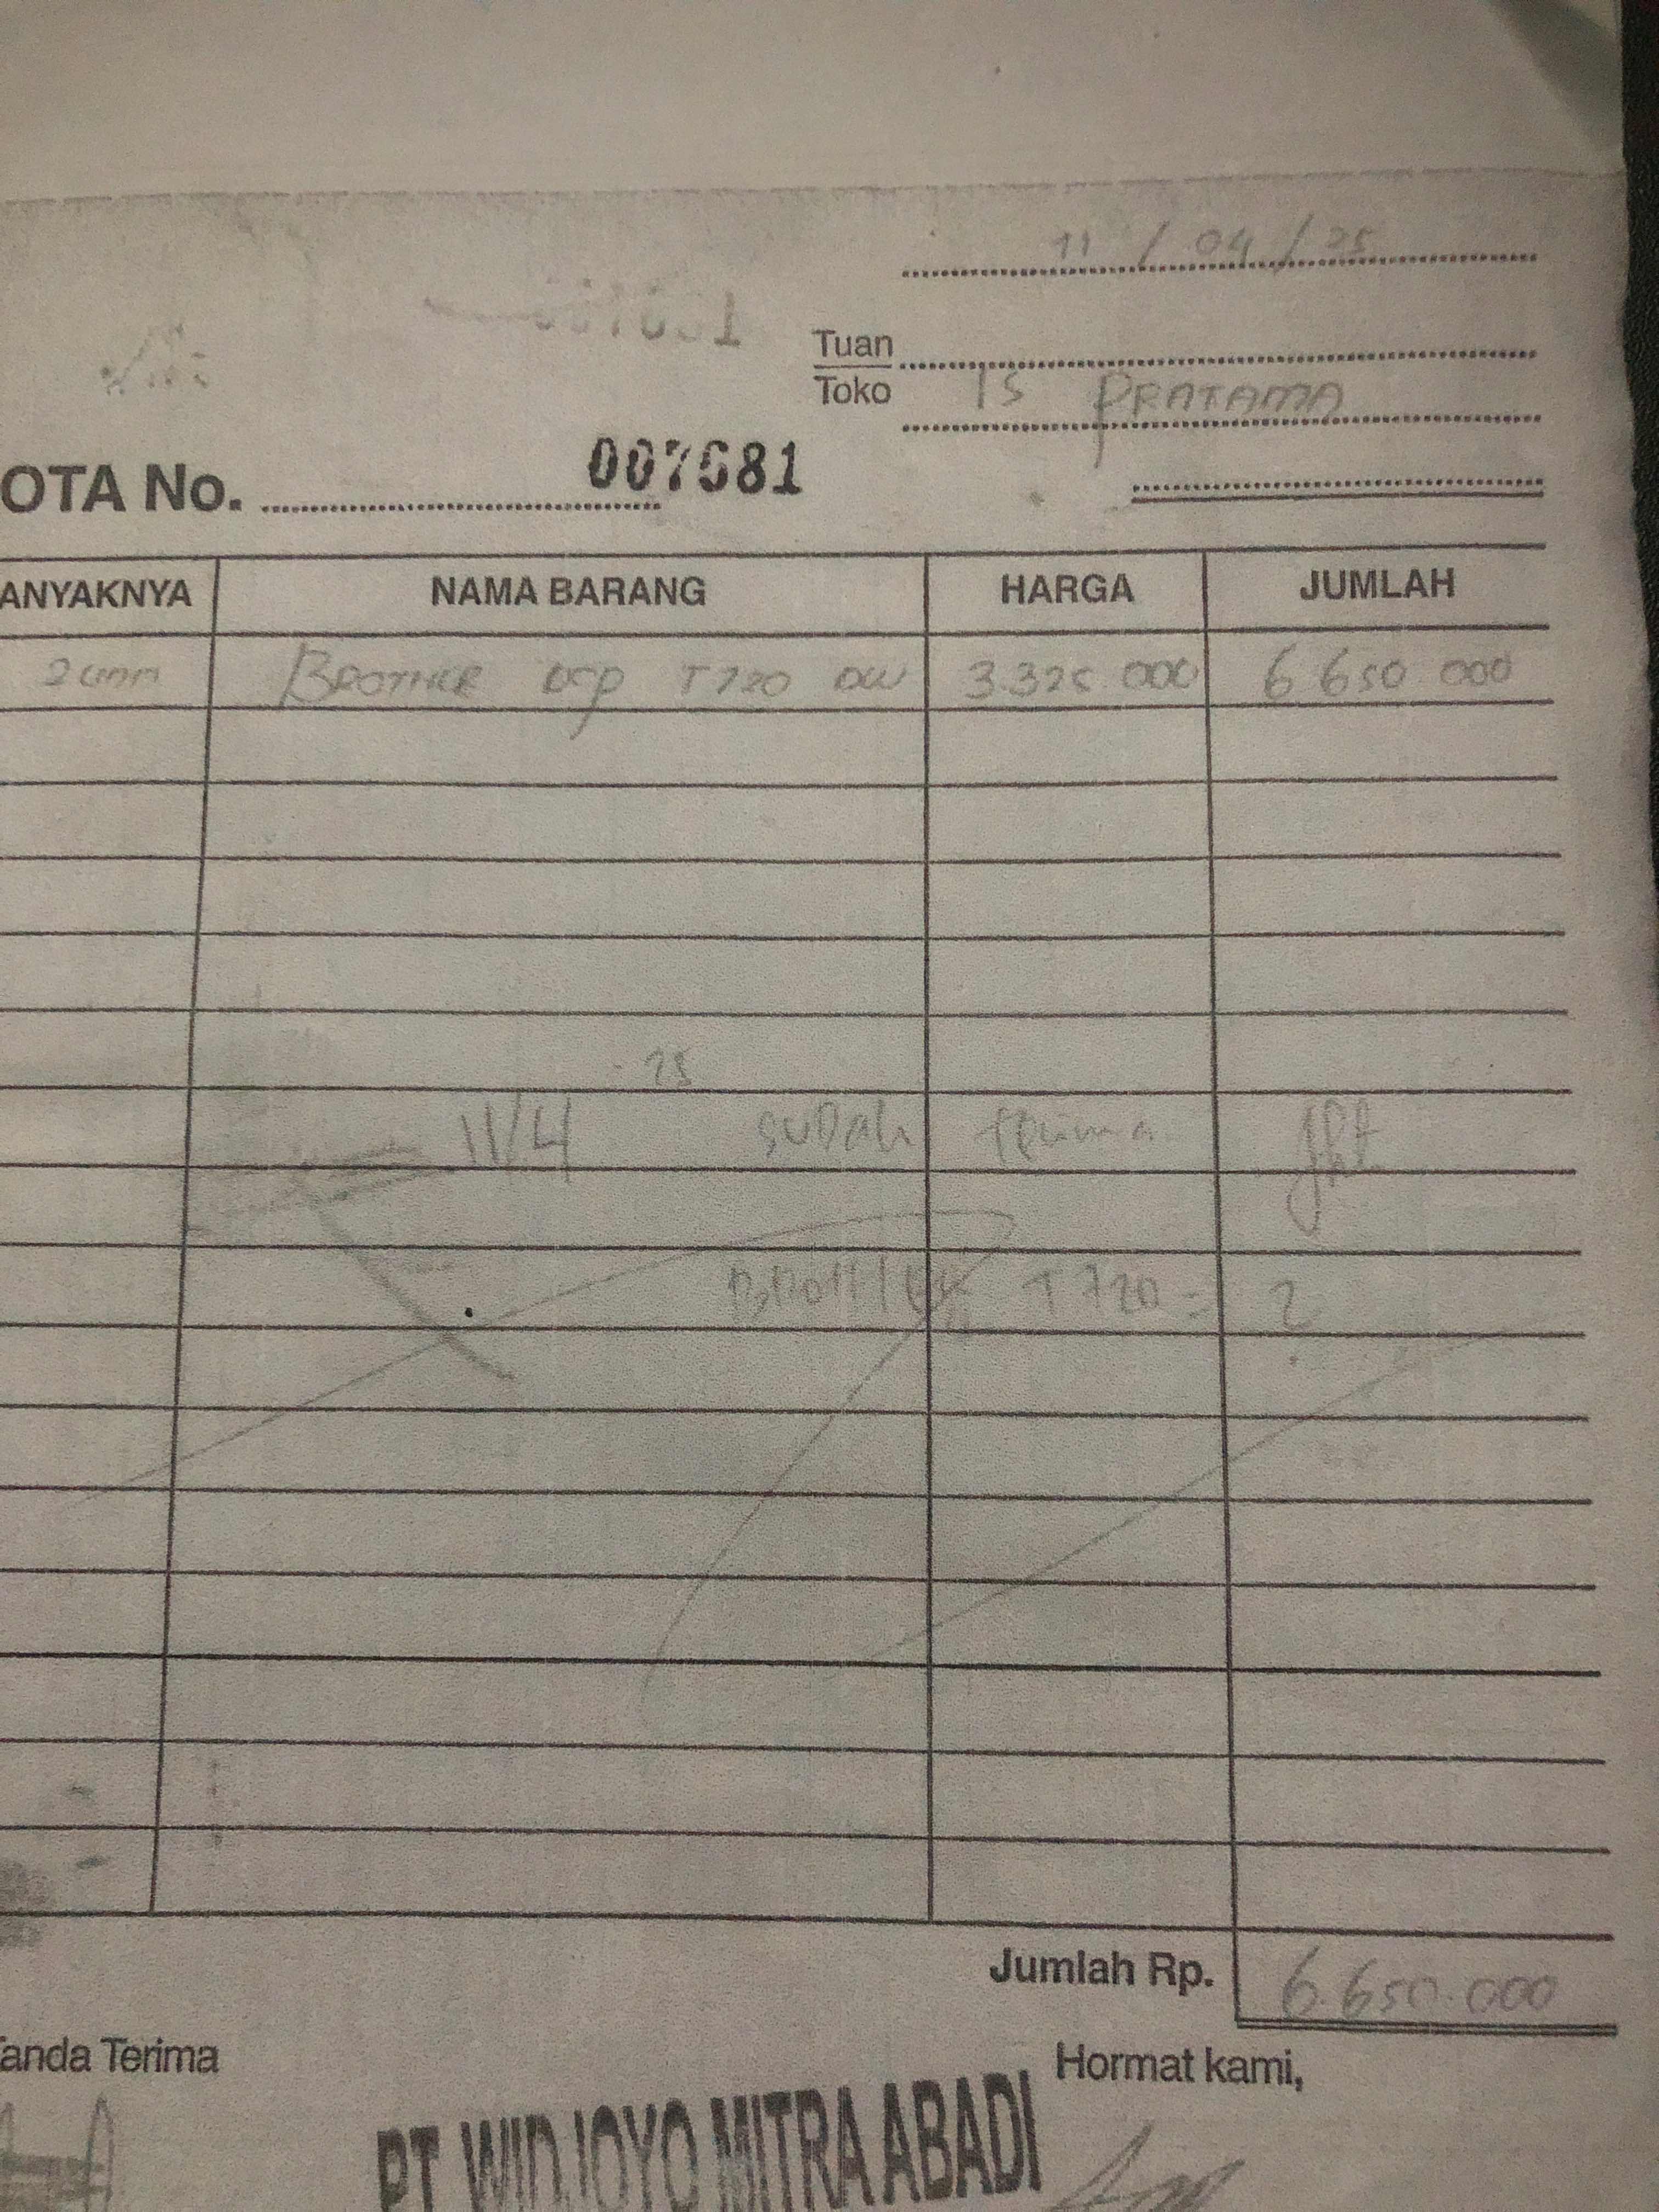 11 / 04 / 25
Tuan
Toko 15 PRATAMA
OTA No. 007681
ANYAKNYA NAMA BARANG HARGA JUMLAH
2 unit BROTHER DCP T720 DW 3.325.000 6 650 000
25
11/4 SUDah terima
BROTHER T720 = 2
Jumlah Rp. 6.650.000
anda Terima Hormat kami,
PT WIDJOYO MITRA ABADI